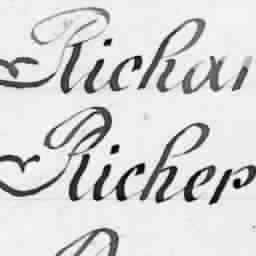 Richar
Richer